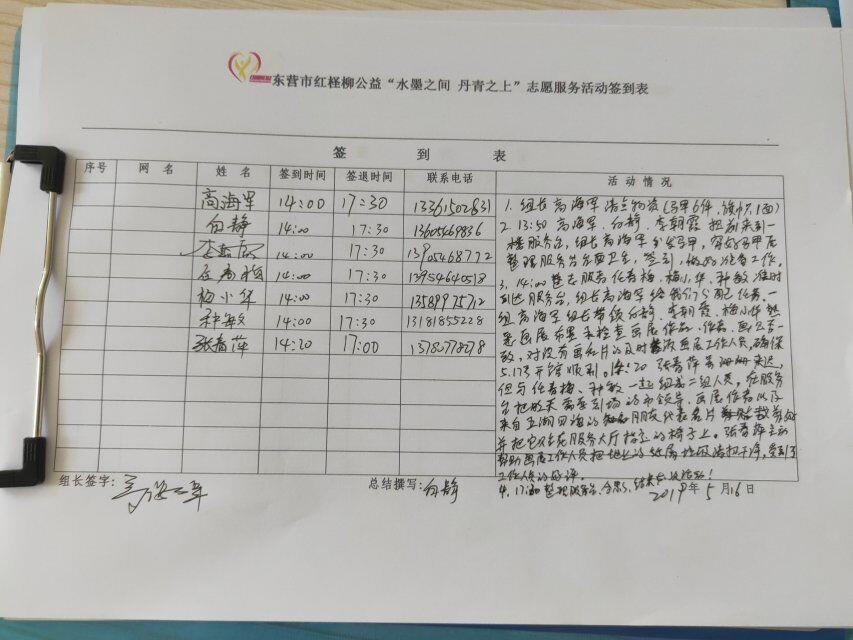 东营市红柽柳公益“水墨之间 丹青之上”志愿服务活动签到表
签 到 表
序号 网 名 姓 名 签到时间 签退时间 联系电话 活 动 情 况
高海军 14:00 17:30 13361502831
白静 14:00 17:30 13605469836
14:00 17:30 13905468772
14:00 17:30 13954640518
梅小华 14:00 17:30 13589975712
种敏 14:00 17:30 13181855228
张春萍 14:20 17:00
1. 组长高海军清点物资(马甲6件,旗帜1面)
2. 13:50 高海军、白静、李朝霞提前来到一
楼服务台,组长高海军分发马甲,穿好马甲后
整理服务台东西卫生,签到,做好准备工作。
3. 14:00 任春梅、梅小华、种敏准时
到达服务台,组长高海军给我们分配任务。一
组高海军组长带领白静、李朝霞、梅小华
画展作品、作者、
致,对没有 的及时 画展工作人员,确保
5.17日开馆顺利。14:20 张春萍
但与任春梅、种敏一起组成二组人员,在服务
台 到场的市领导、画展作者以及
来自五湖四海的 朋友
并把它 在服务大厅 的椅子上。张春萍主动
帮助画展工作人员把地上的 垃圾清扫干净,受到了
工作人员的好评。
4. 17:30 整理服务台、合影、结束
组长签字: 高海军 总结撰写: 白静 2019年5月16日